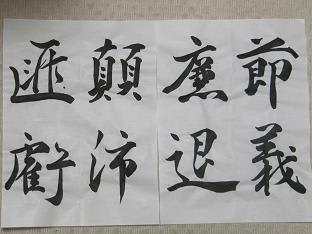 節義
廉退
顛沛
匪虧